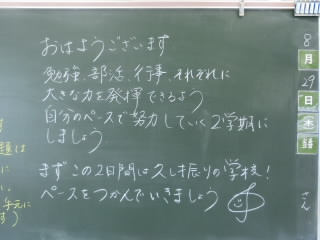 おはようございます
勉強、部活、行事、それぞれに
大きな力を発揮できるよう
自分のペースで努力していく2学期に
しましょう
まずこの2日間は久し振りの学校！
ペースをつかんでいきましょう
8
月
29
日
さん